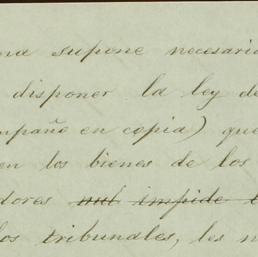 na supone necesaria
disponer la ley de
mpaño en copia) que
en los bienes de los
dores nul impide
los tribunales, les n